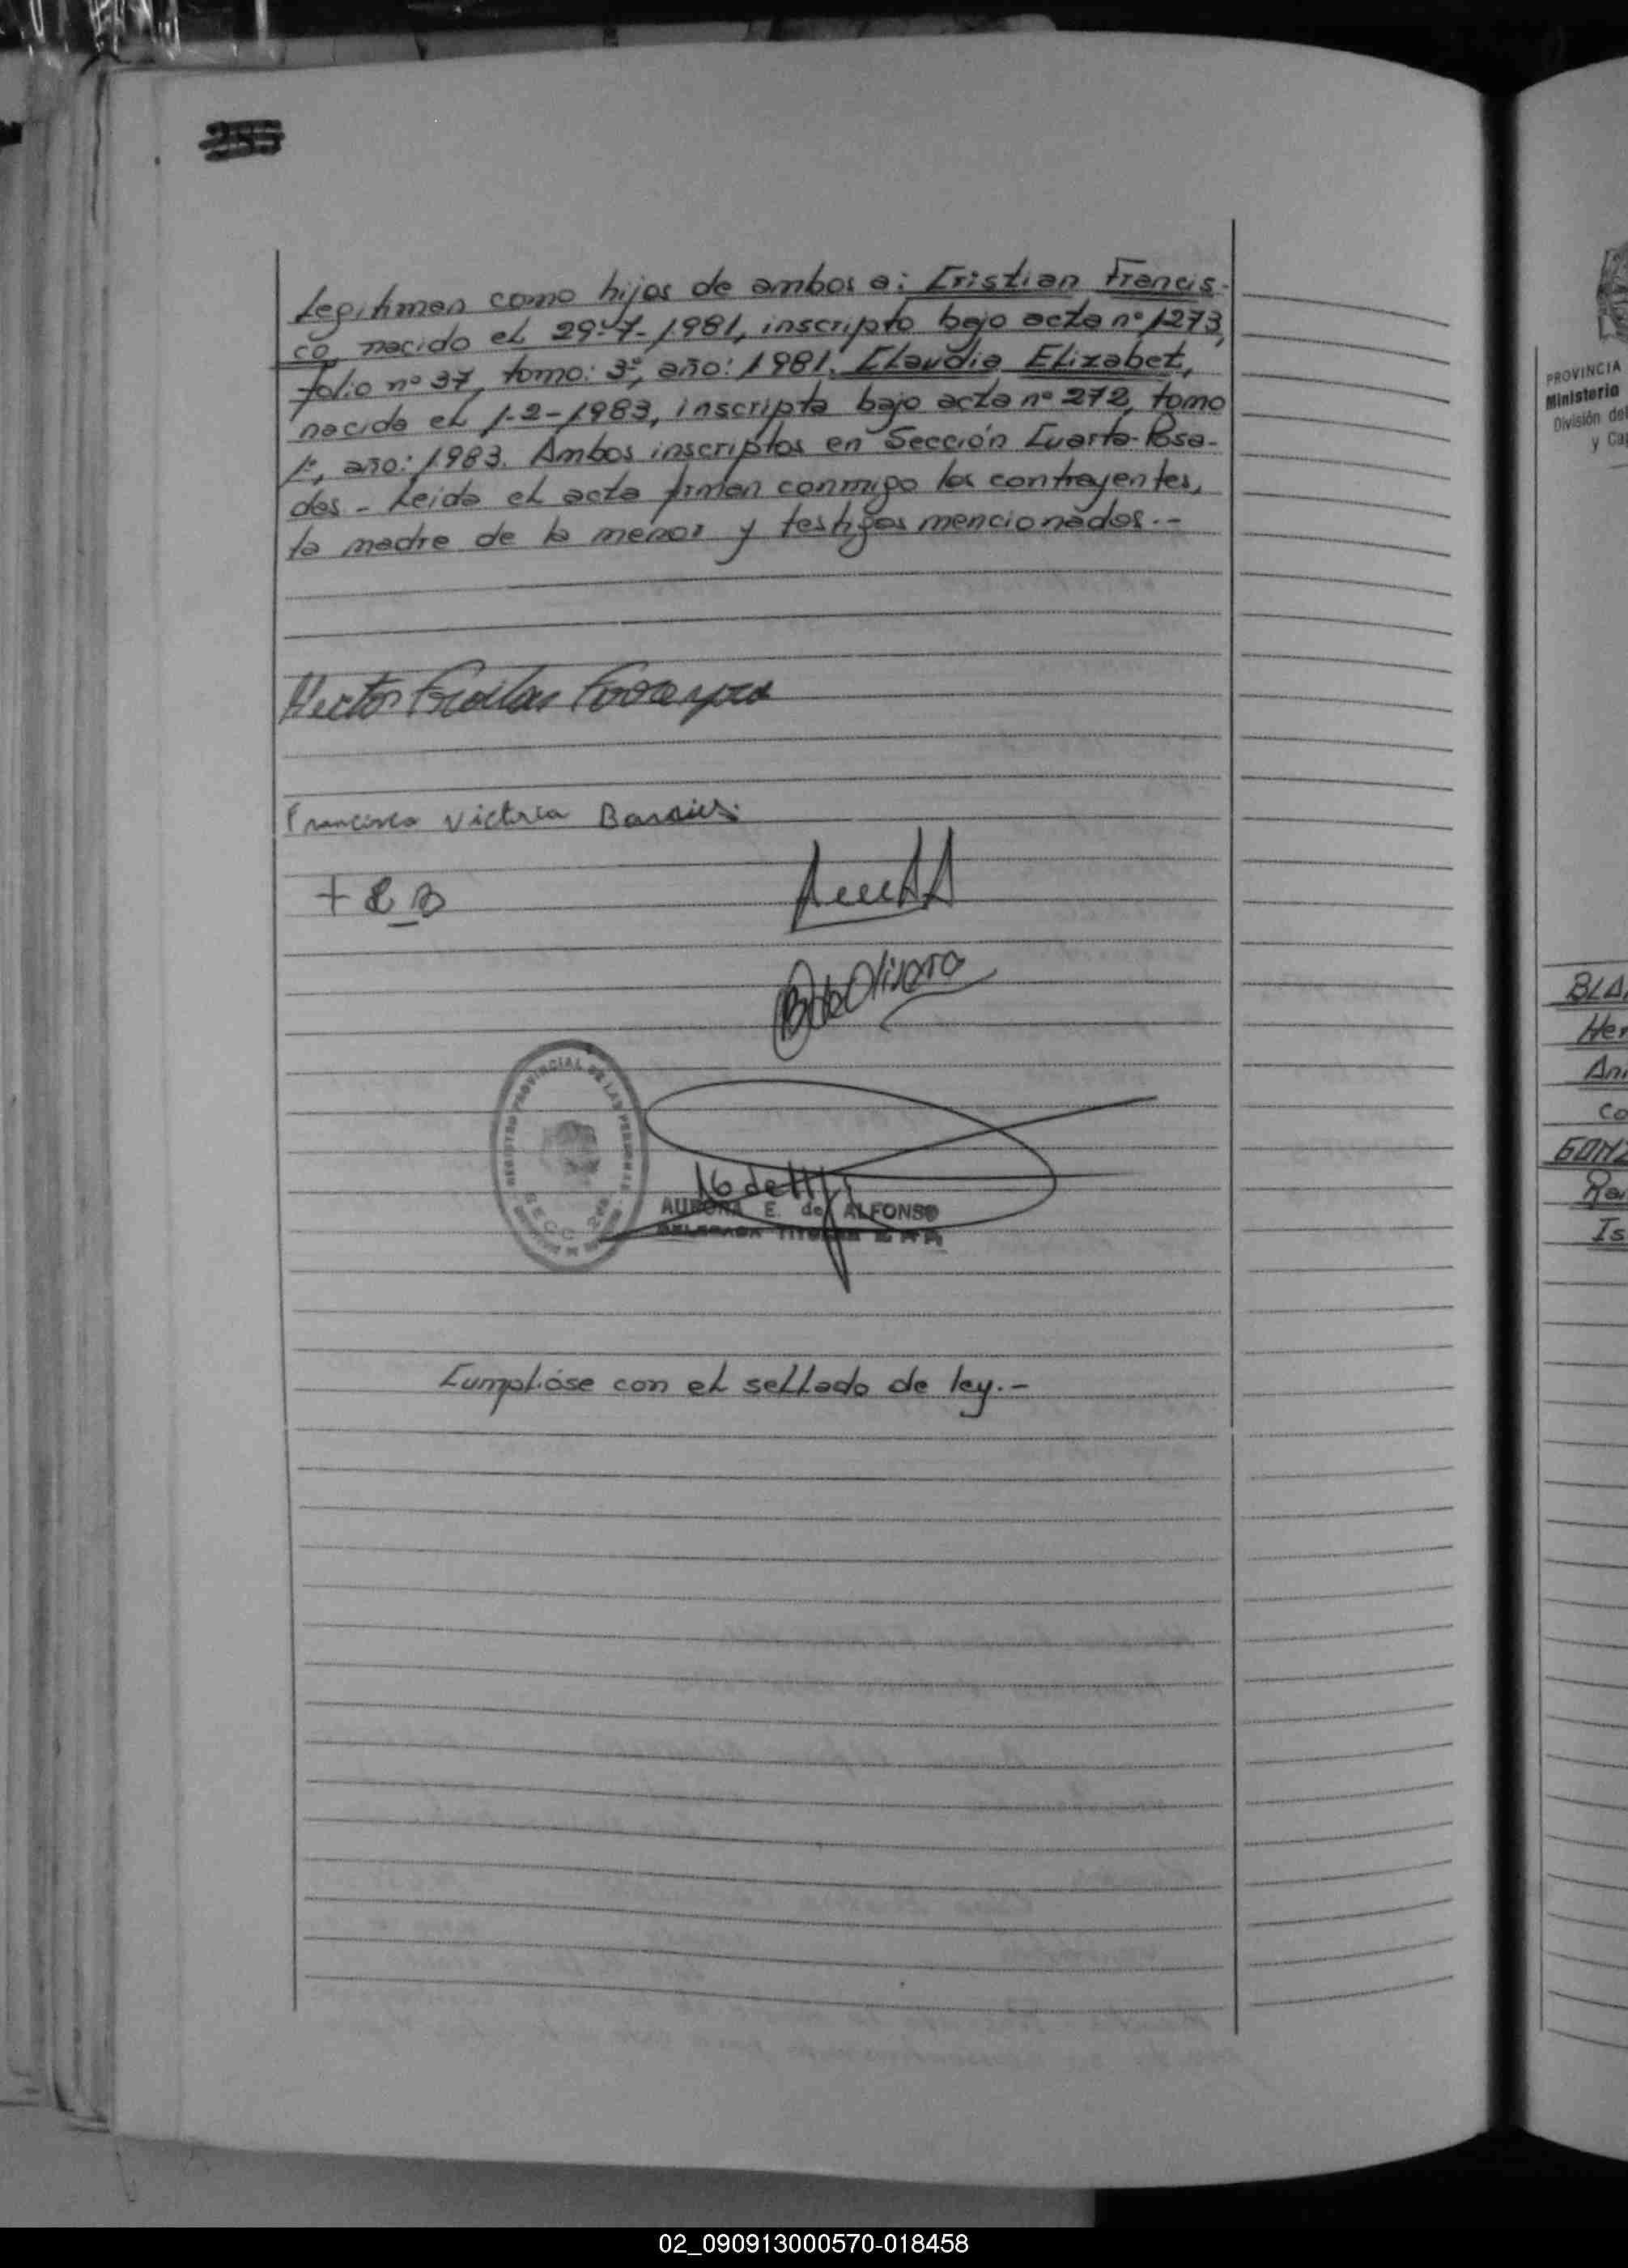 Legitiman como hijos de ambos a: Cristian Francis-
co, nacido el 29-7-1981, inscripto bajo acta nº 1273,
folio nº 37, tomo: 3º, año: 1981. Claudia Elizabet,
nacida el 1-2-1983, inscripta bajo acta nº 272, tomo
1º, año: 1983. Ambos inscriptos en Sección Cuarta-Posa-
das - Leída el acta firman conmigo los contrayentes,
la madre de la menor y testigos mencionados.-
Hector
Francisca Victoria
de Olivera
REGISTRO PROVINCIAL DE LAS PERSONAS
SECC.
AURORA E. de ALFONSO
DELEGADA TITULAR
Cumplióse con el sellado de ley.-
PROVINCIA
Ministerio
División del
y Ca
BLA
Her
Ani
co
GONZ
Ra
Is
02_090913000570-018458